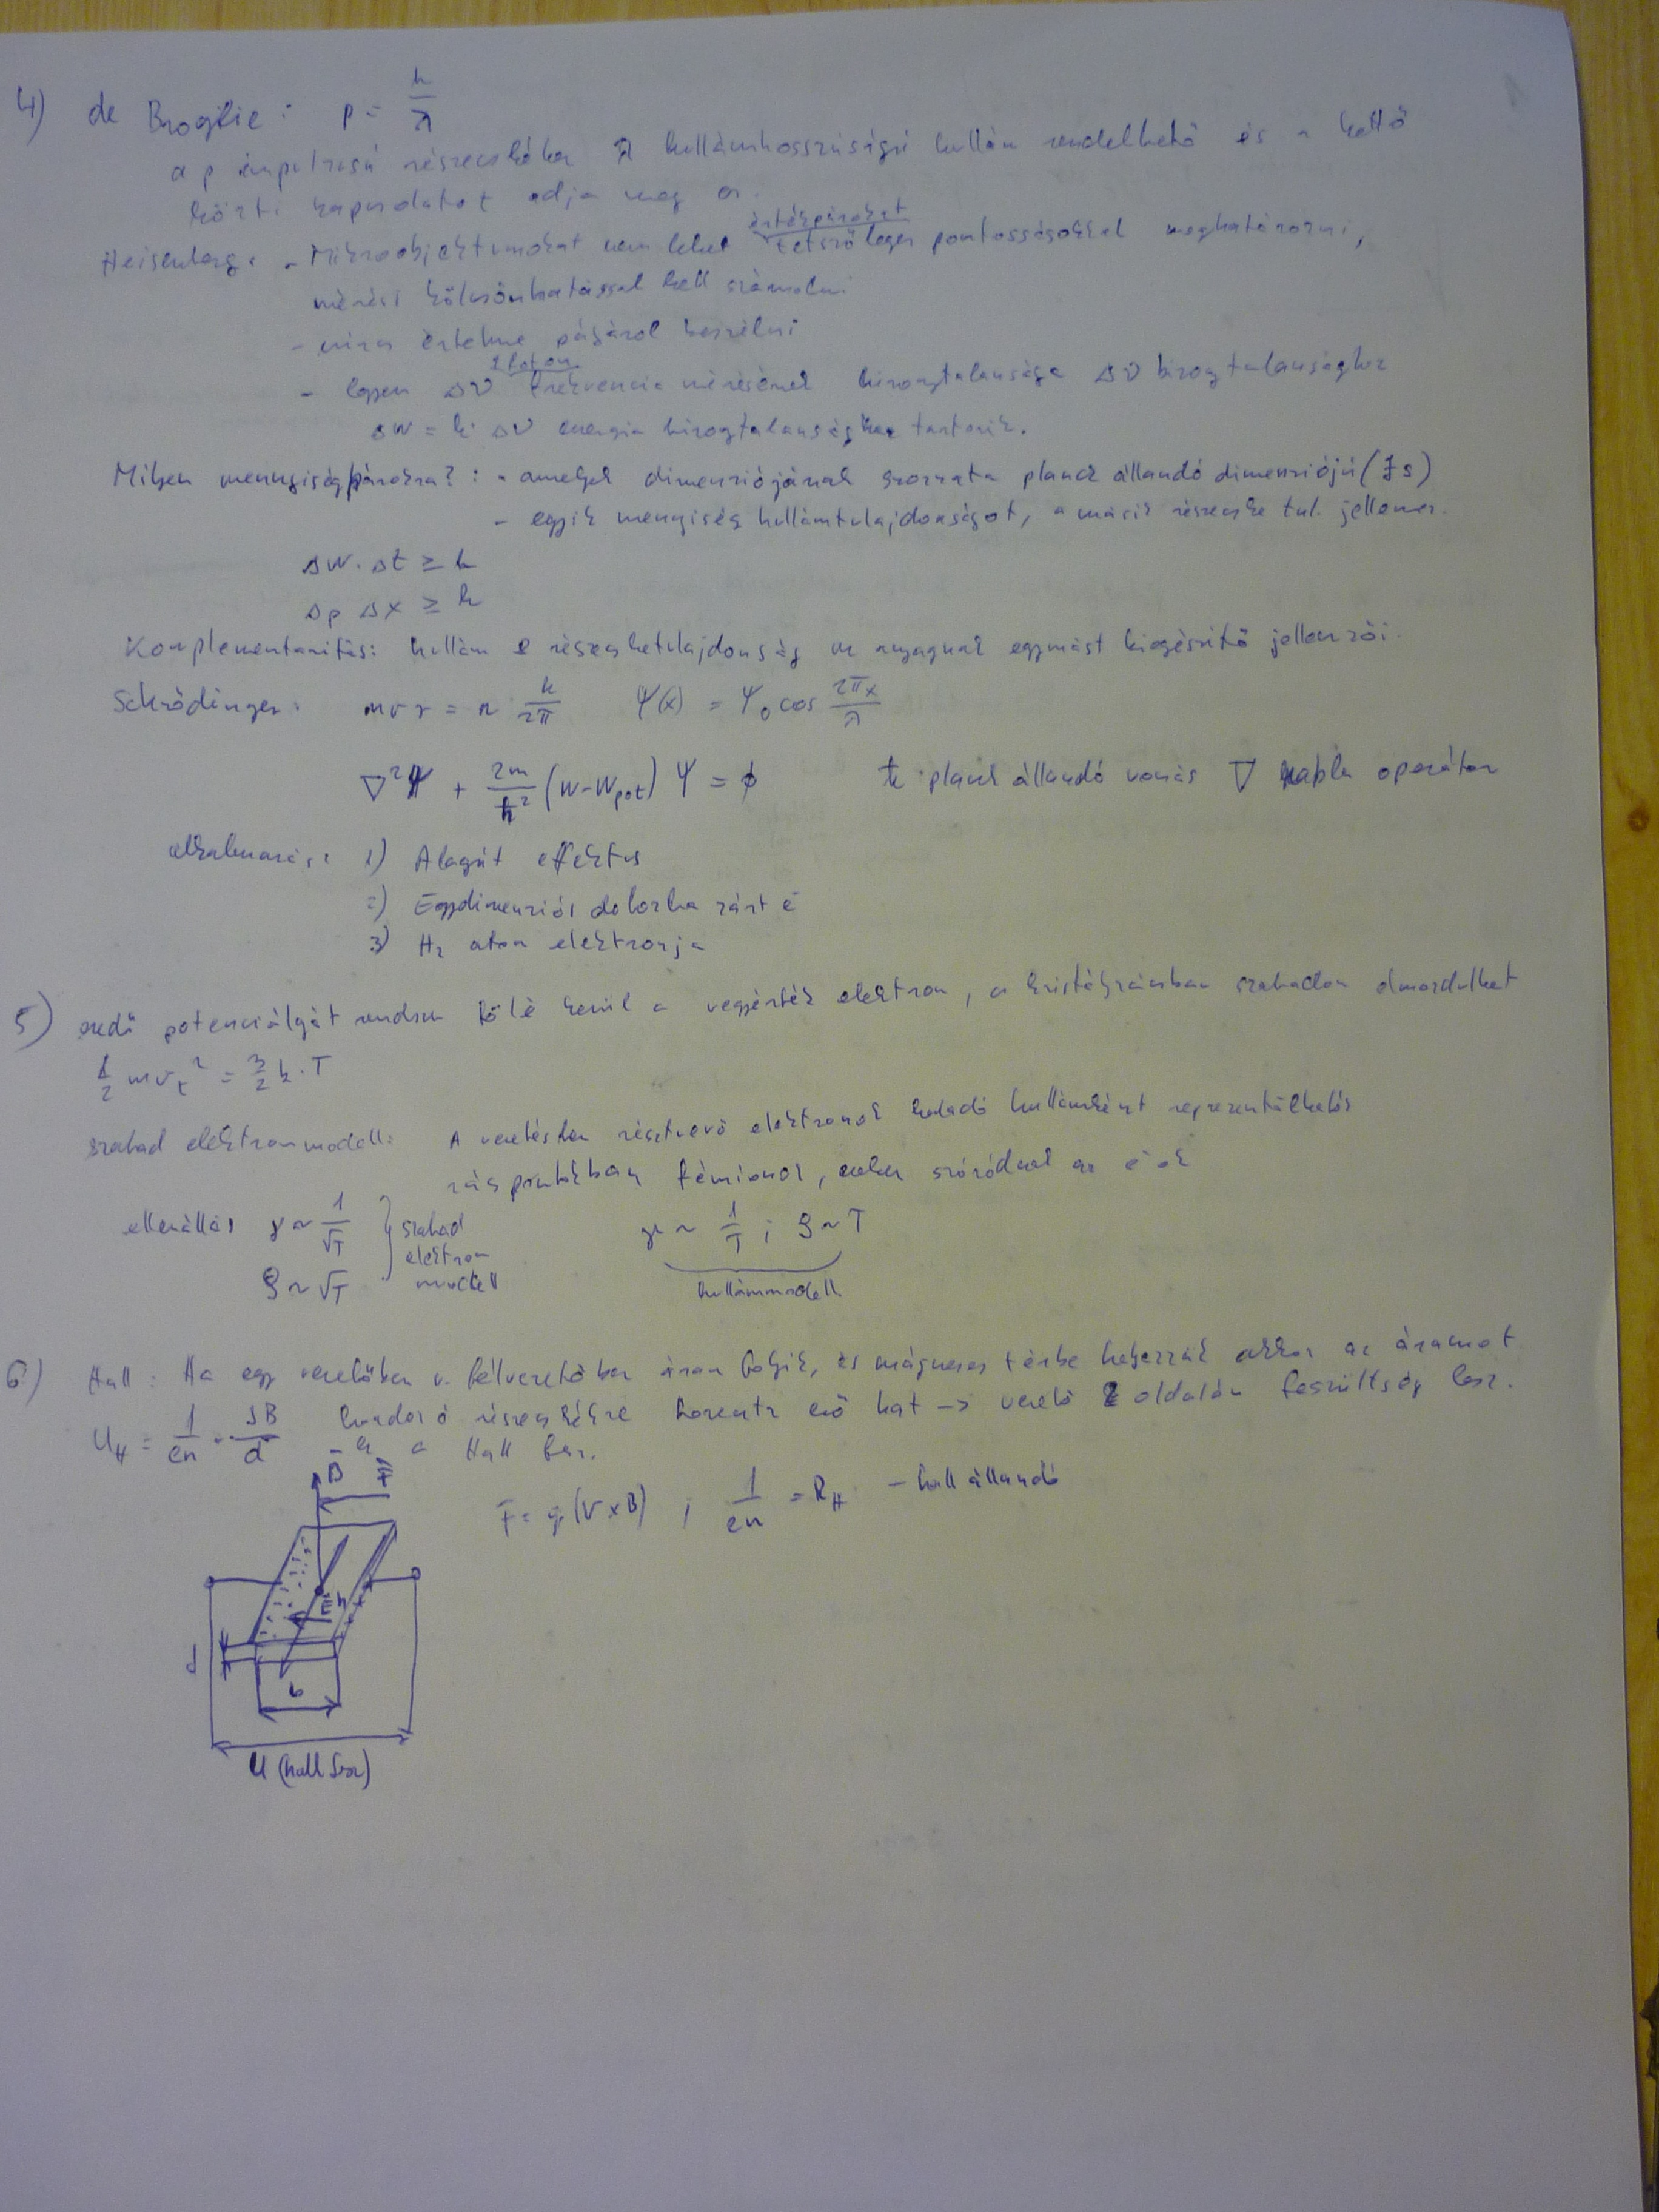 4) de Broglie: p = h/λ
a p impulzusú részecskéhez λ hullámhosszúságú hullám rendelhető és a kettő
közti kapcsolatot adja meg
értékpárokat
Heisenberg: - Mikroobjektumokat nem lehet tetszőleges pontosságokkal meghatározni,
mérési kölcsönhatással kell számolni
- nincs értelme pályáról beszélni
- legyen Δν frekvencia mérésének bizonytalansága Δν bizonytalansághoz
ΔW = h·Δν energia bizonytalanság tartozik.
Milyen mennyiségpárokra?: - amelyek dimenziójának szorzata planck állandó dimenziójú (Js)
- egyik menyiség hullámtulajdonságot, a másik részecske tul. jellemez.
ΔW·Δt ≥ h
Δp Δx ≥ h
Komplementaritás: hullám részecsketulajdonság anyagnak egymást kiegészítő jellemzői.
Schrödinger: mvr = n h/2π Ψ(x) = Ψ₀ cos 2πx/λ
∇²Ψ + 2m/ħ² (W-Wpot) Ψ = ϕ ħ planck állandó vonás ∇ nabla operátor
alkalmazás: 1) Alagút effektus
2) Egydimenziós dobozba zárt e⁻
3) H₂ atom elektronja
5) eredő potenciálgát rendszer fölé kerül a vegyérték elektron, a kristályrácsban szabadon elmozdulhat
1/2 mv_t² = 3/2 k·T
szabad elektronmodell: A vezetésben résztvevő elektronok haladó hullámként reprezentálhatók
rácspontokban fémionok, szóródnak az e⁻ok
ellenállás γ ~ 1/√T } szabad elektron modell γ ~ 1/T ; ρ ~ T
ρ ~ √T hullámmodell
6) Hall: Ha egy vezetőben v. félvezetőben áram folyik, és mágneses térbe helyezzük akkor az áramot
U_H = 1/en · JB/d hordozó részecskékre Lorentz erő hat -> vezető 2 oldalán feszültség lesz.
ez a Hall fesz.
B F
F = q(V×B) ; 1/en = R_H - hall állandó
E_h
d
b
U (hall fesz)